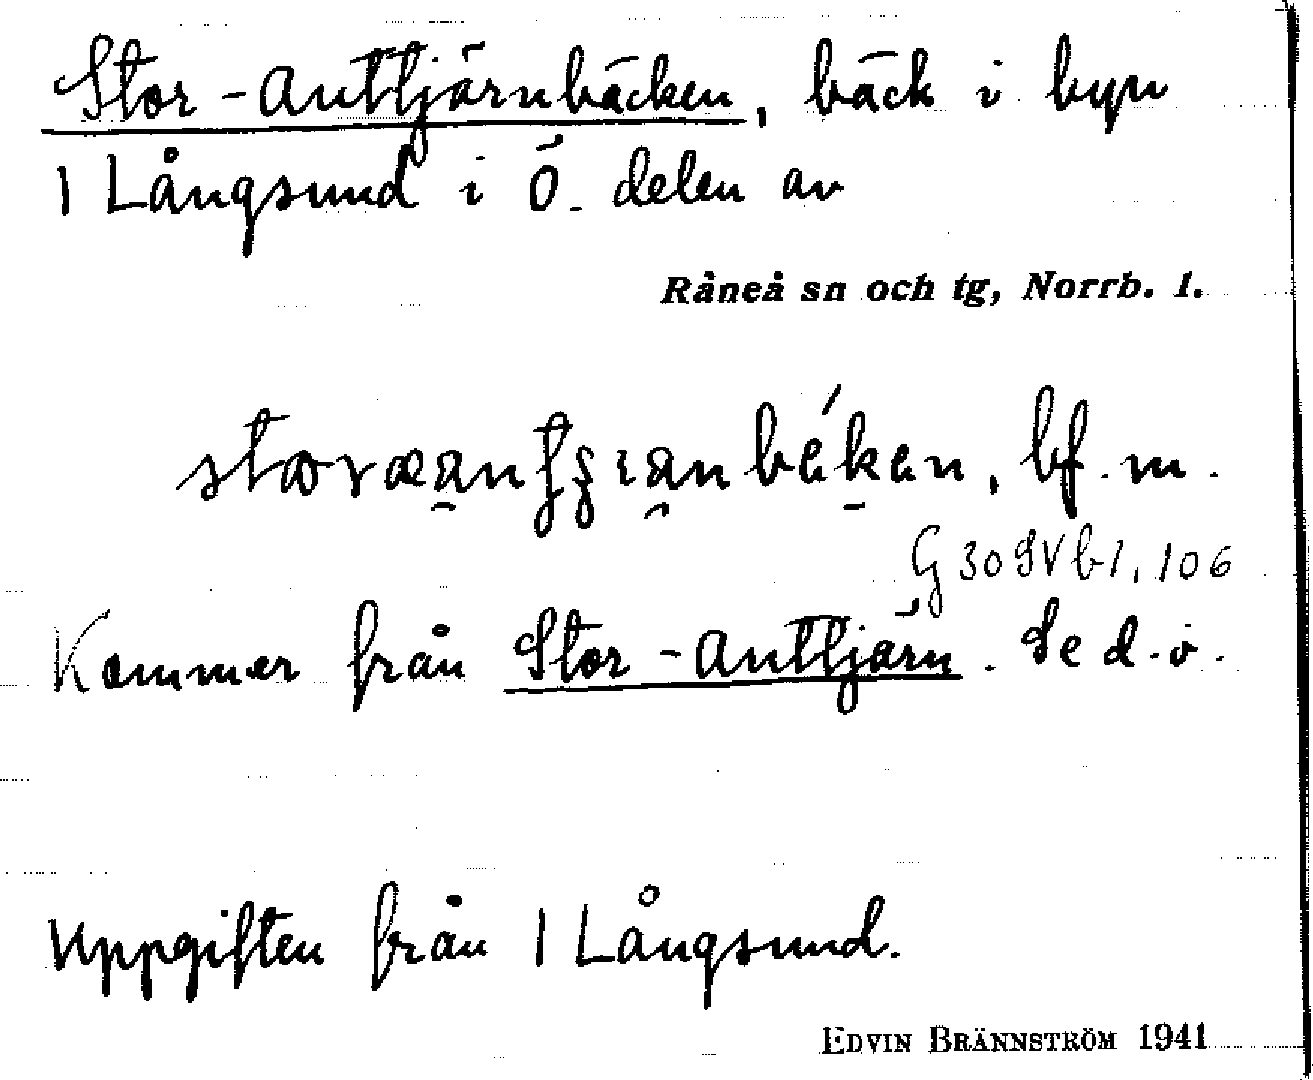 Stor-Anttjärnbäcken, bäck i byn
1 Långsund i Ö. delen av
Råneå sn och tg, Norrb. l.
bf. m.
G 30 SVb1, 106
Kommer från Stor-Anttjärn. Se d.o.
Uppgiften från 1 Långsund.
EDVIN BRÄNNSTRÖM 1941